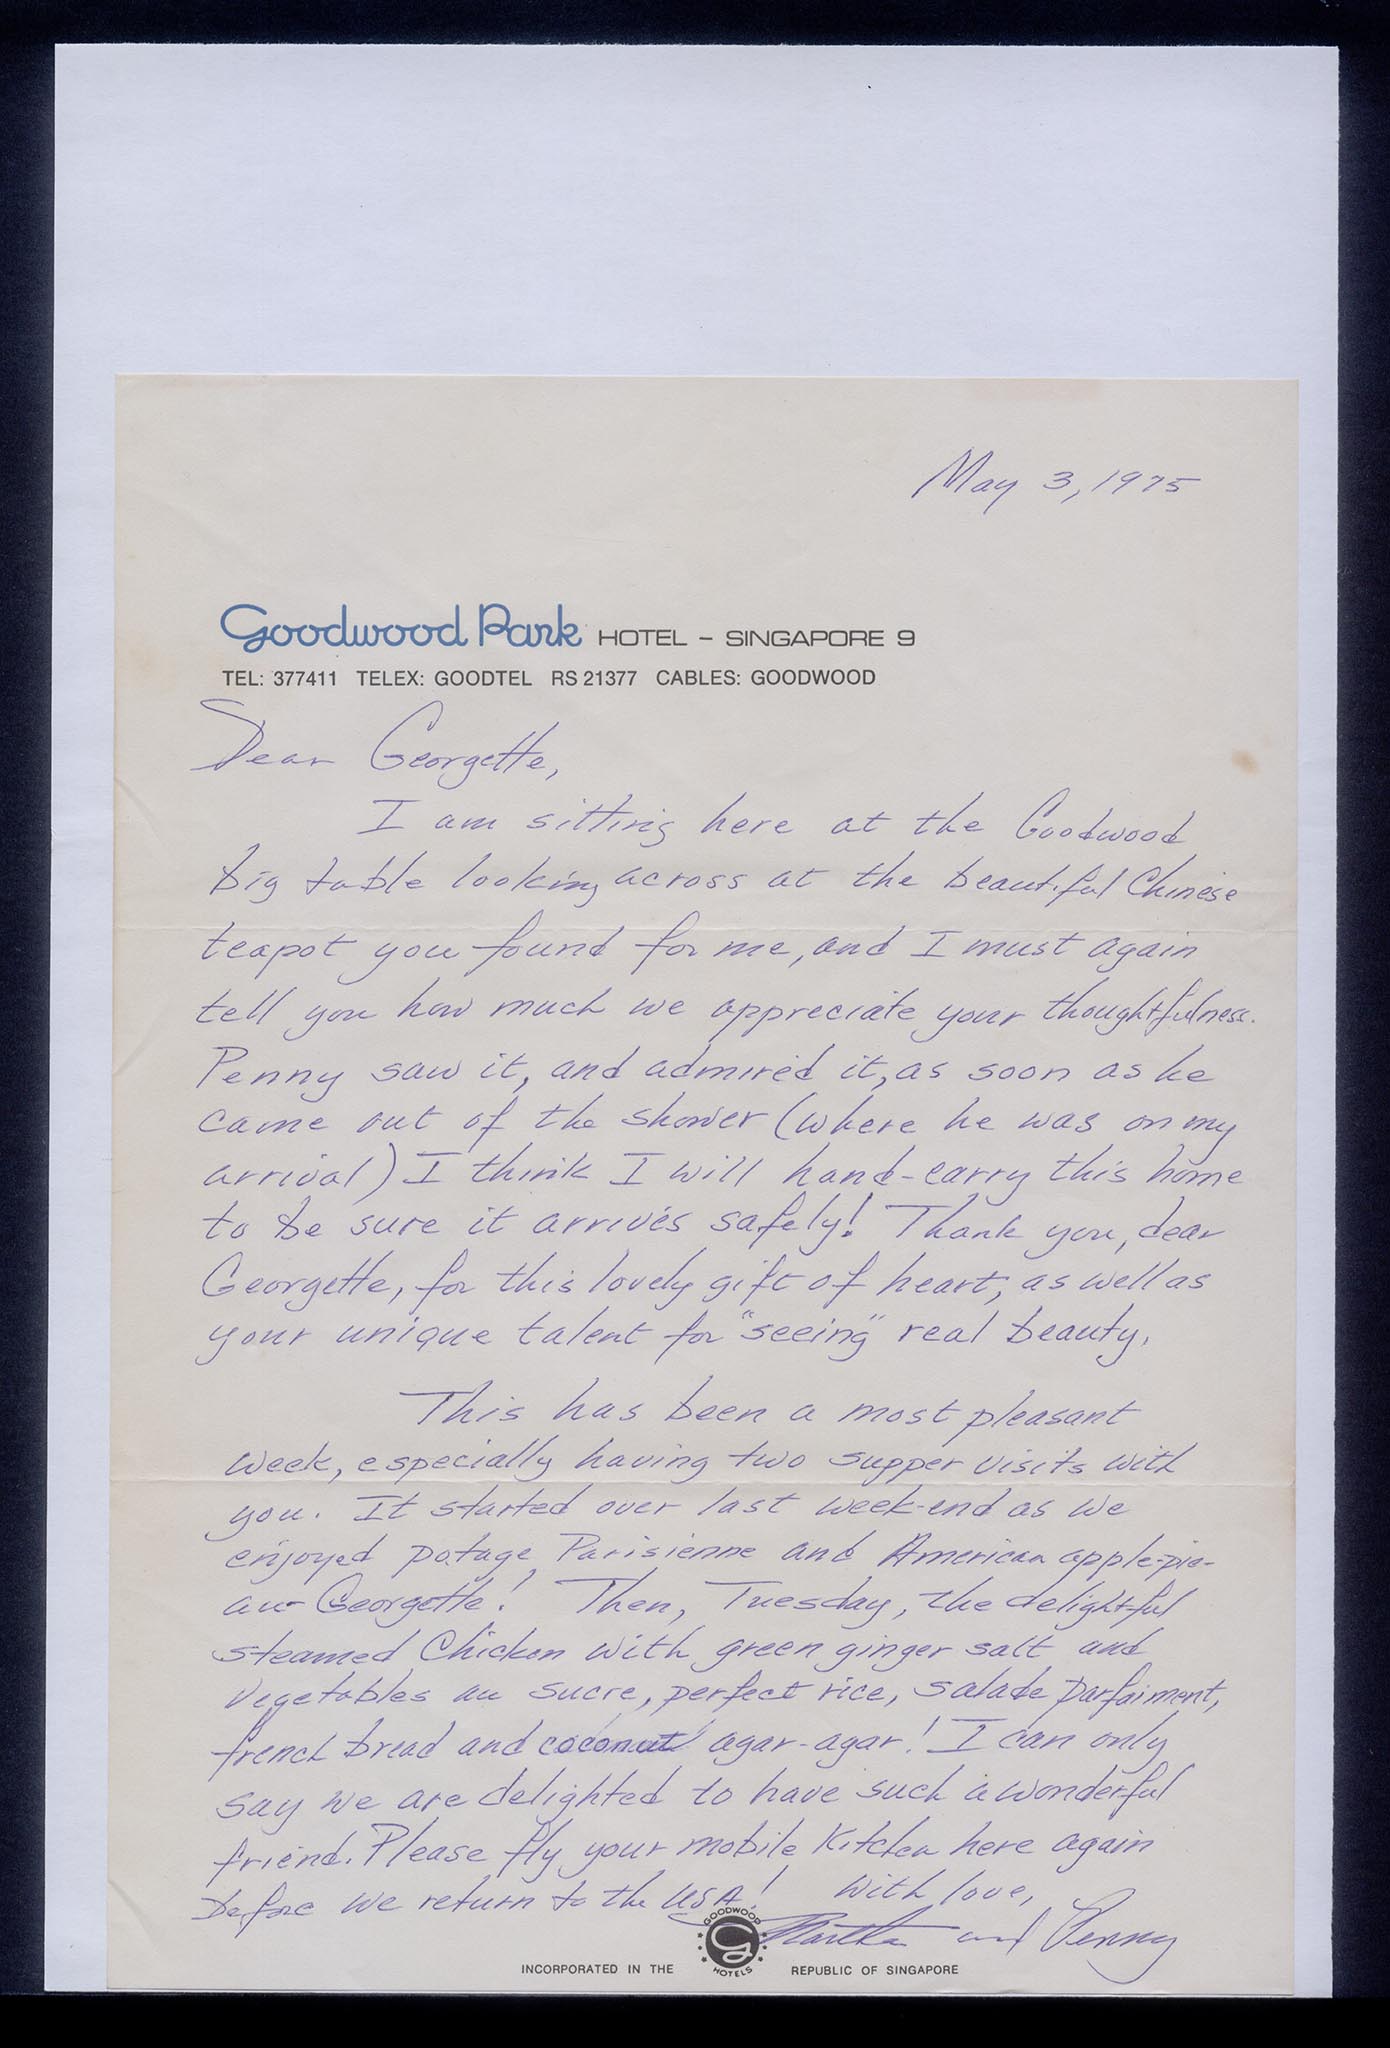 May 3, 1975
Goodwood Park HOTEL - SINGAPORE 9
TEL: 377411 TELEX: GOODTEL RS 21377 CABLES: GOODWOOD
Dear Georgette,
I am sitting here at the Goodwood
big table looking across at the beautiful Chinese
teapot you found for me, and I must again
tell you how much we appreciate your thoughtfulness.
Penny saw it, and admired it, as soon as he
came out of the shower (where he was on my
arrival) I think I will hand-carry this home
to be sure it arrives safely! Thank you, dear
Georgette, for this lovely gift of heart, as well as
your unique talent for "seeing" real beauty.
This has been a most pleasant
week, especially having two supper visits with
you. It started over last week-end as we
enjoyed potage Parisienne and American apple-pie-
au-Georgette! Then, Tuesday, the delightful
steamed Chicken with green ginger salt and
Vegetables au sucre, perfect rice, salade parfaiment,
french bread and coconut agar-agar! I can only
say we are delighted to have such a wonderful
friend. Please fly your mobile Kitchen here again
before we return to the USA! With love,
Martha and Penny
GOODWOOD HOTELS
INCORPORATED IN THE REPUBLIC OF SINGAPORE